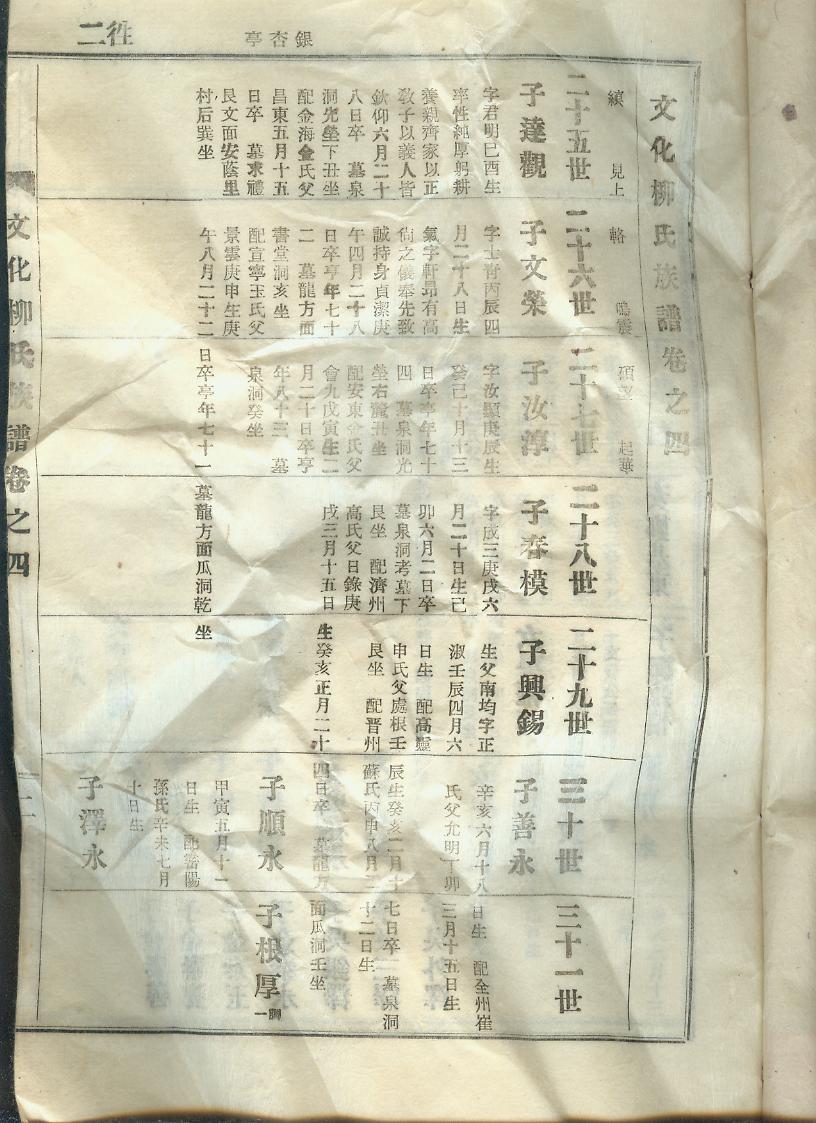 銀杏亭
二
文化柳氏族譜卷之四
縝 見上 輅 鳴震 碩
起華
二十五世
子達觀
字君明己酉生
率性純厚躬耕
養親齊家以正
敎子以義人皆
欽仰六月二十
八日卒 墓泉
洞先塋下丑坐
配金海金氏父
昌東五月十五
日卒 墓求禮
艮文面安蔭里
村后巽坐
二十六世
子文榮
字士肯丙辰四
月二十八日生
氣宇軒昻有高
尙之儀奉先致
誠持身貞潔庚
午四月二十八
日卒亨年七十
二 墓龍方面
書堂洞亥坐
配宜寧玉氏父
景雲庚申生庚
午八月二十二
日卒亨年七十一
墓龍方面瓜洞乾
坐
二十七世
子汝淳
字汝顯庚辰生
癸巳十月十三
日卒亨年七十
四 墓泉洞先
塋右麓丑坐
配安東金氏父
會九戊寅生二
月二十日卒亨
年八十三 墓
泉洞癸坐
二十八世
子春模
字成三庚戌六
月二十日生己
卯六月二日卒
墓泉洞考墓下
艮坐 配濟州
高氏父日錄庚
戌三月十五日
生癸亥正月二十
四日卒 墓龍方
面瓜洞壬坐
二十九世
子興錫
生父南均字正
淑壬辰四月六
日生 配高靈
申氏父處根壬
辰生癸亥二月十
七日卒 墓泉洞
艮坐 配晋州
蘇氏丙申八月二
十二日生
三十世
子善永
辛亥六月十八
日生 配全州崔
氏父允明丁卯
三月十五日生
子順永
甲寅五月十一
日生 配密陽
孫氏辛未七月
十日生
子澤永
三十一世
子根厚
文化柳氏族譜卷之四
二